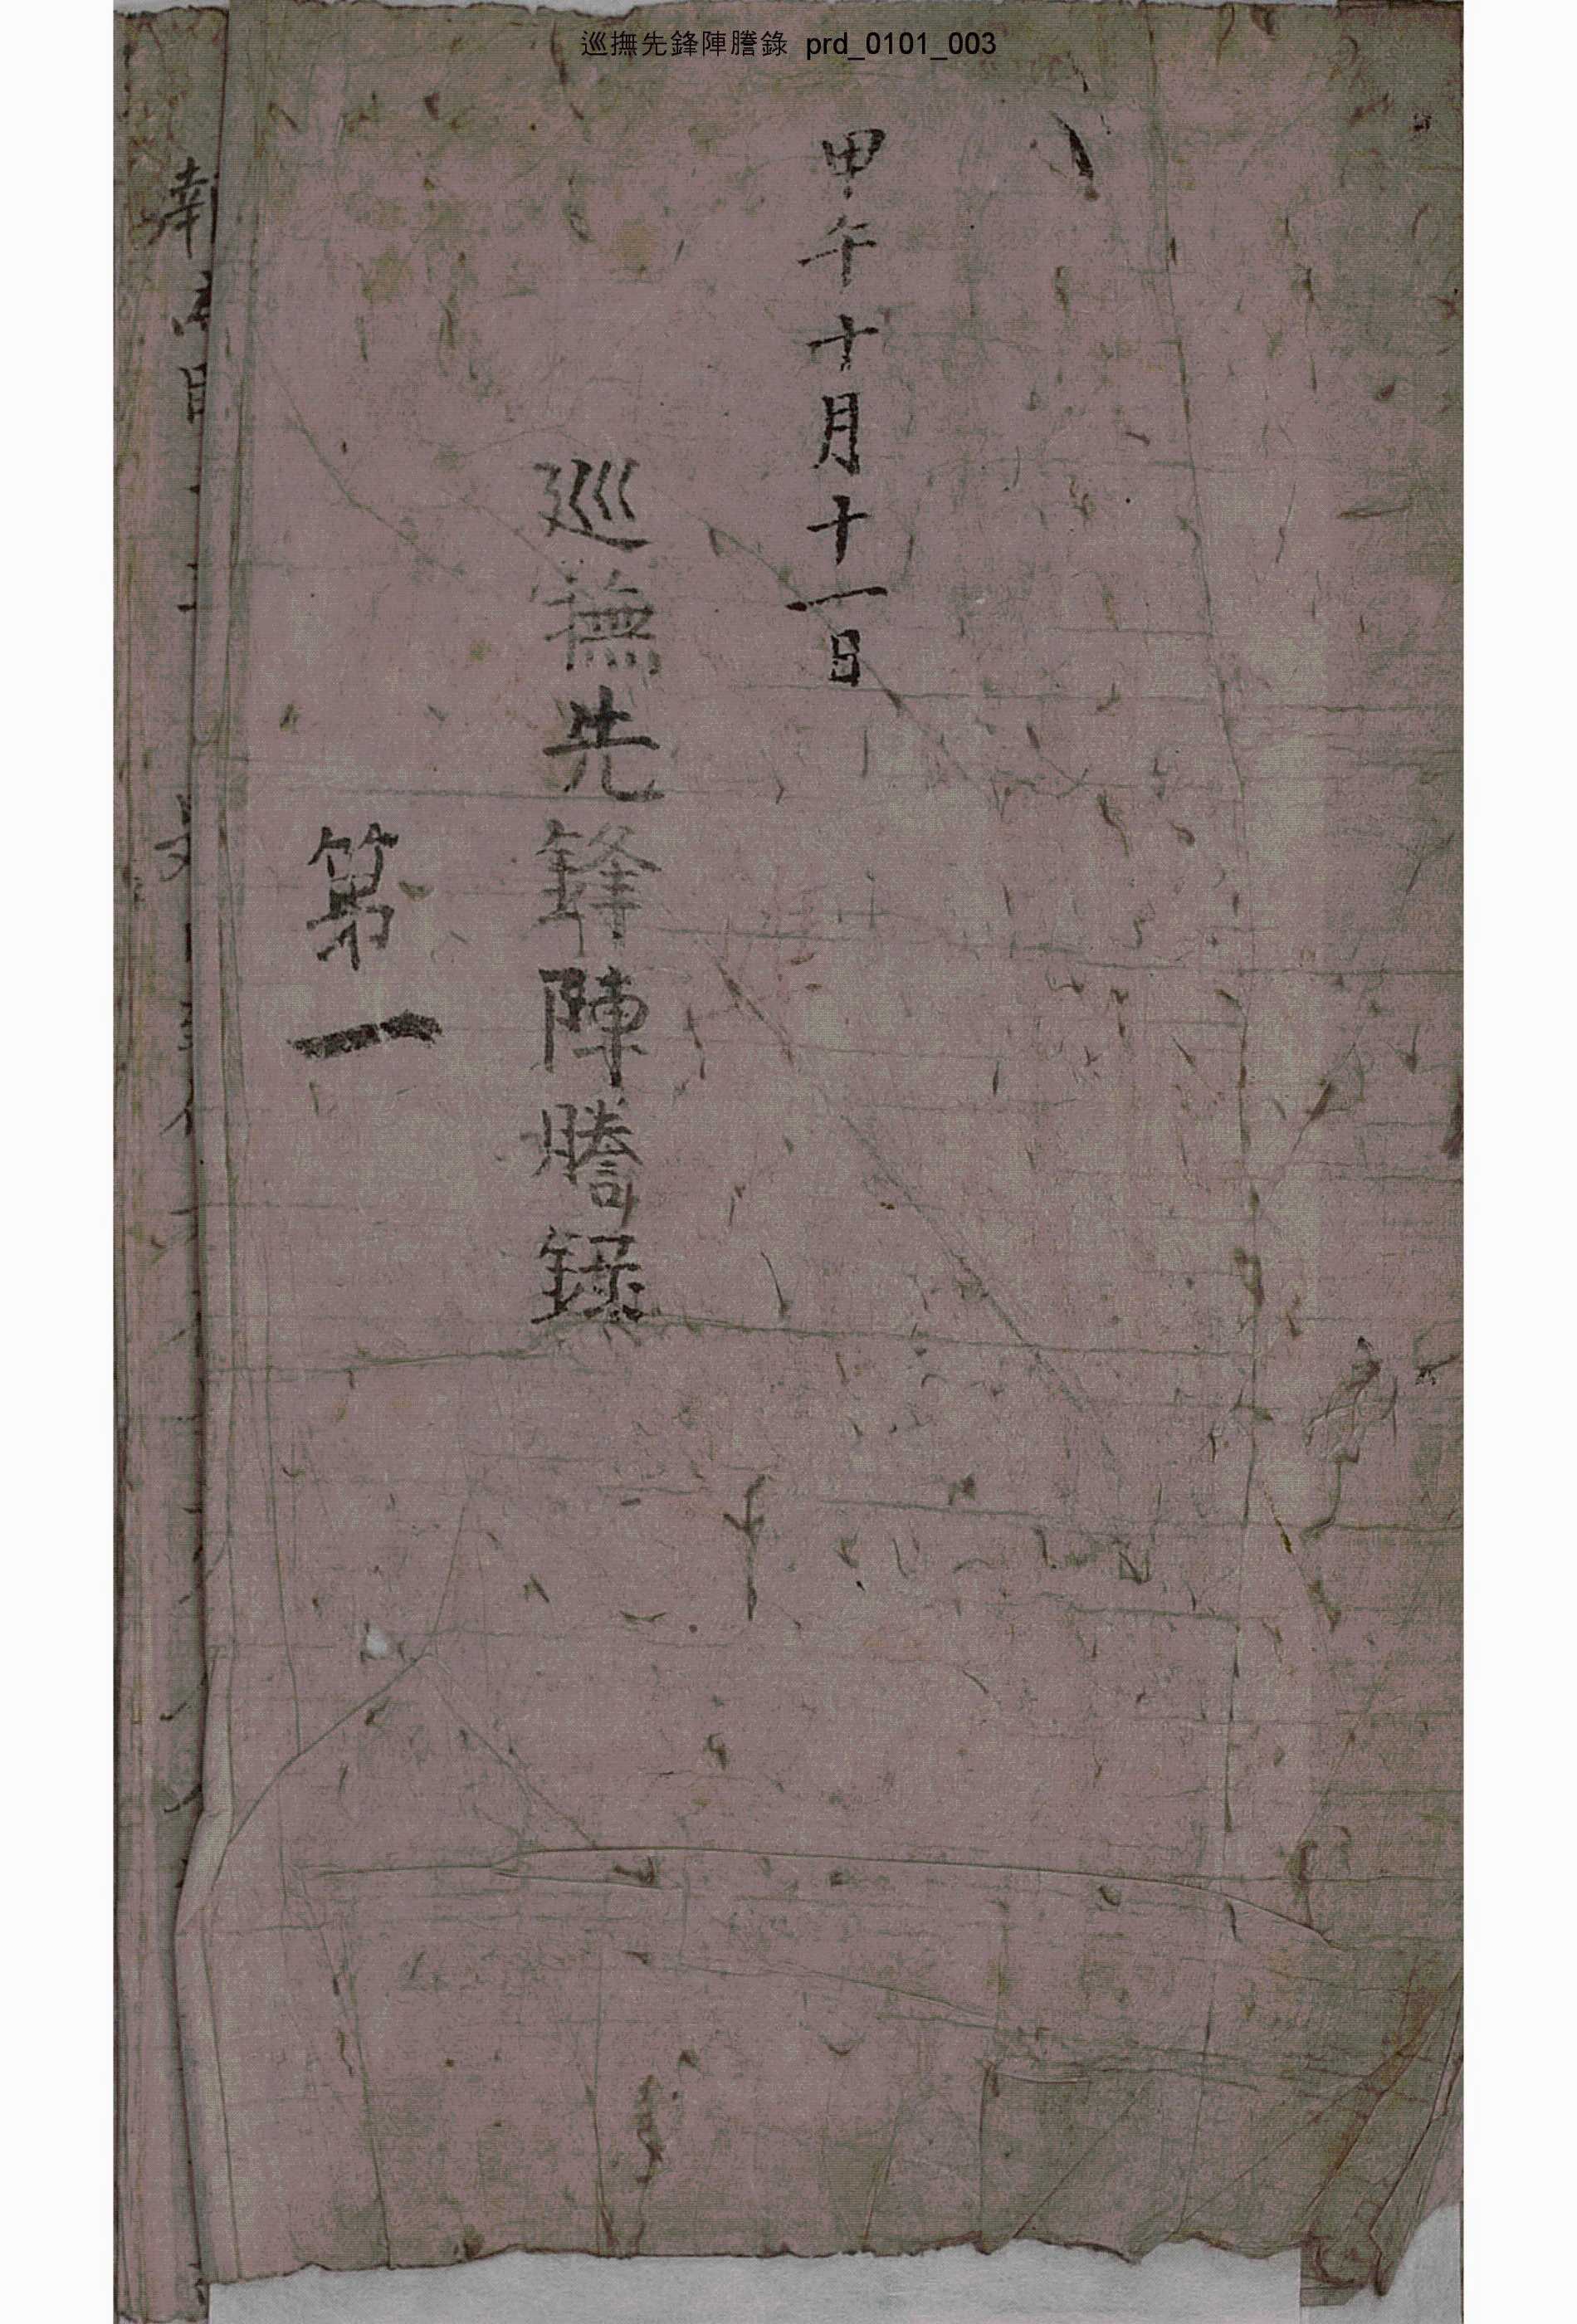 巡撫先鋒陣謄錄 prd_0101_003
甲午十月十一日
巡撫先鋒陣謄錄
第一